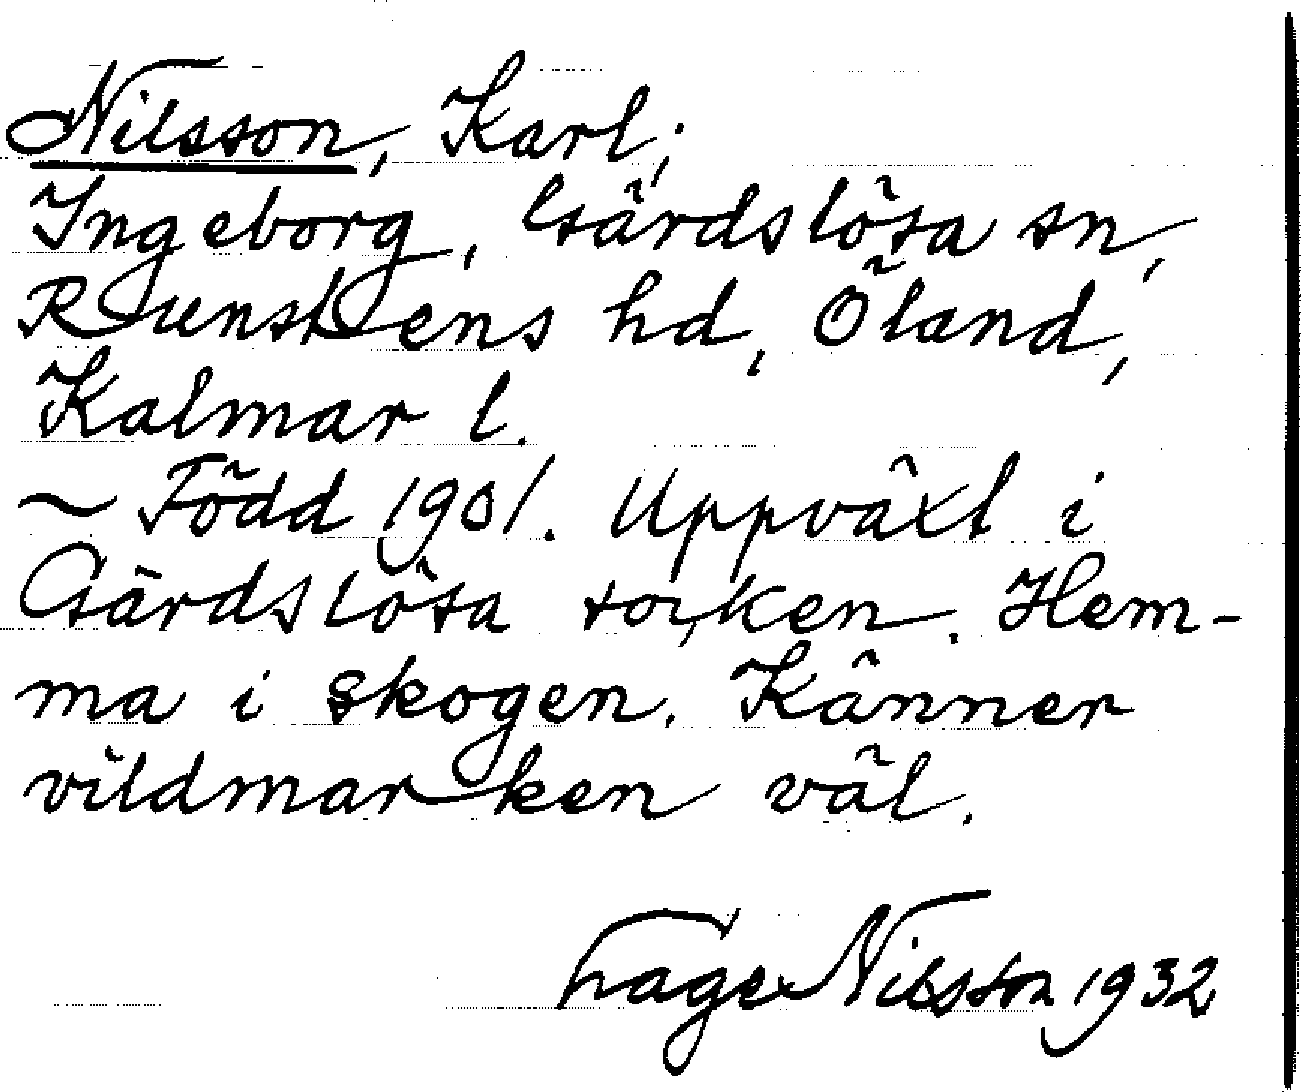 Nilsson, Karl;
Ingeborg, Gärdslösa sn,
Runstens hd, Öland,
Kalmar l.
~ Född 1901. Uppväxt i
Gärdslösa socken. Hem-
ma i skogen. Känner
vildmarken väl.
Tage Nilsson 1932